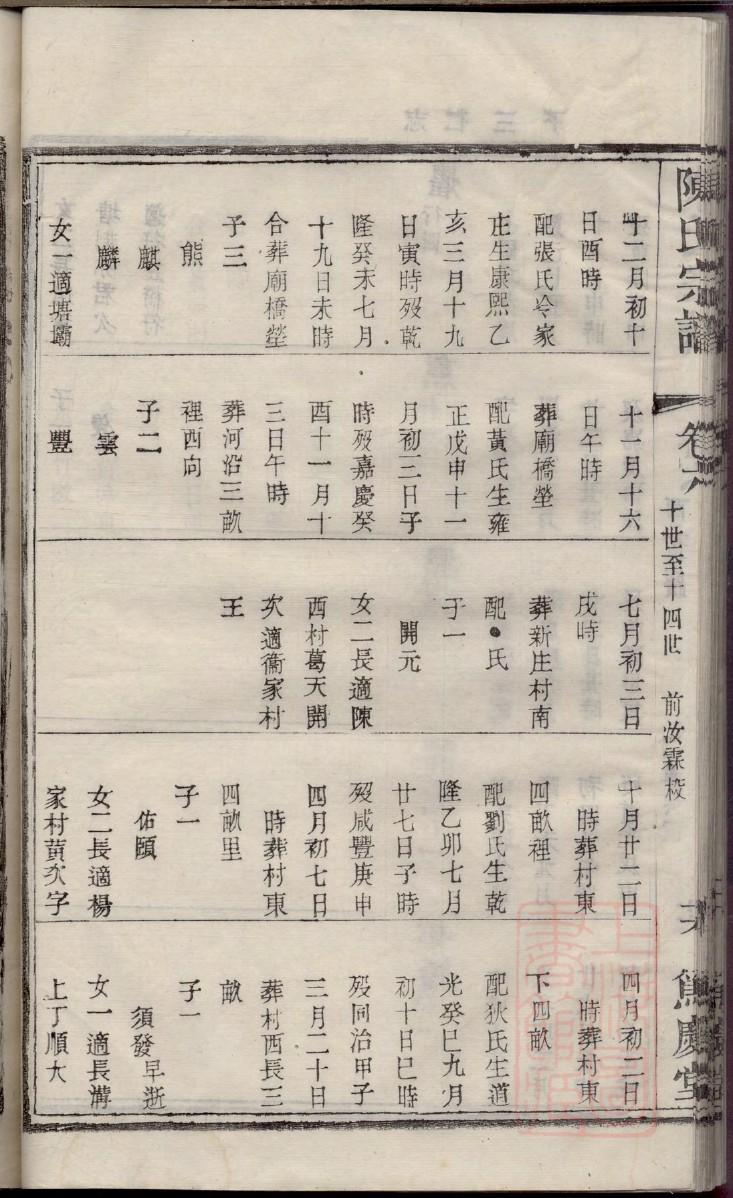 陳氏宗譜
卷六
十世至十四世
前汝霖校
慶堂
十二月初十
日酉時
配張氏令家
庄生康熙乙
亥三月十九
日寅時歿乾
隆癸未七月
十九日未時
合葬廟橋塋
子三
熊
麒
麟
女一適塘壩
十一月十六
日午時
葬廟橋塋
配黃氏生雍
正戊申十一
月初三日子
時歿嘉慶癸
酉十一月十
三日午時
葬河沿三畝
裡西向
子二
雲
豐
七月初三日
戌時
葬新庄村南
配●氏
子一
開元
女二長適陳
西村葛天開
次適衞家村
王
十月廿二日
時葬村東
四畝裡
配劉氏生乾
隆乙卯七月
廿七日子時
歿咸豐庚申
四月初七日
時葬村東
四畝里
子一
佑頤
女二長適楊
家村黃次字
四月初二日
時葬村東
下四畝
配狄氏生道
光癸巳九月
初十日巳時
歿同治甲子
三月二十日
葬村西長三
畝
子一
須發早逝
女一適長溝
上丁順大